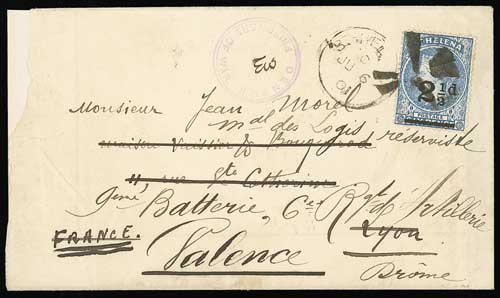 HELENA
2½d
POSTAGE
Monsieur Jean Morel
mal des Logis réserviste
maison Vaissier & 
11 rue Ste Catherine
9ème Batterie, 6e Rgt d'Artillerie
Lyon
FRANCE.
Valence
Drôme